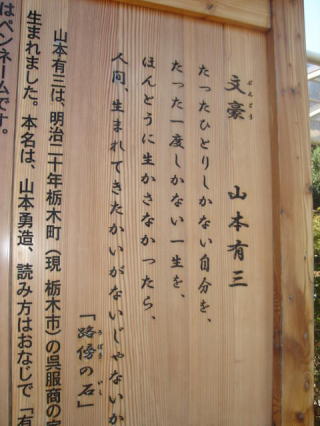 文豪 山本有三
ぶんごう
たったひとりしかない自分を、
たった一度しかない一生を、
ほんとうに生かさなかったら、
人間、生まれてきたかいがないじゃないか
「路傍の石」
ろぼう いし
山本有三は、明治二十年栃木町（現 栃木市）の呉服商の
生まれました。本名は、山本勇造、読み方はおなじで「有
はペンネームです。